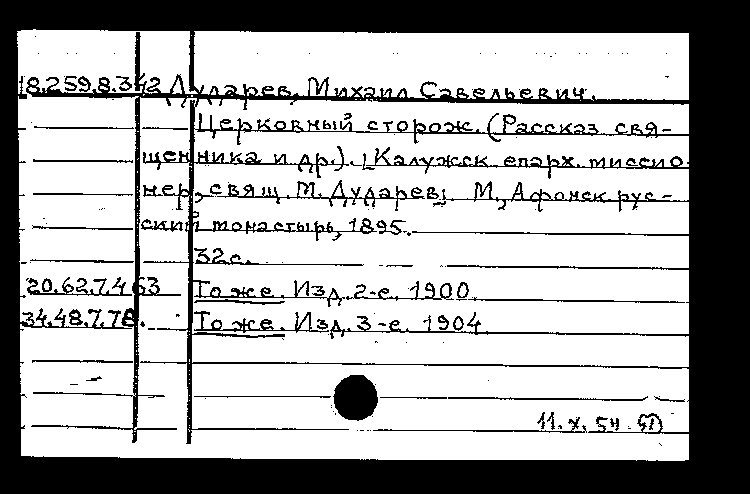 18.259.8.342 Дударев, Михаил Савельевич.
Церковный сторож. (Рассказ свя-
щенника и др.). [Калужск. епарх. миссио-
нер, свящ. М. Дударев]. М., Афонск. рус-
ский монастырь, 1895.
32 с.
20.62.7.463 То же. Изд. 2-е. 1900.
34.48.7.78. То же. Изд. 3-е. 1904
11.X.54.